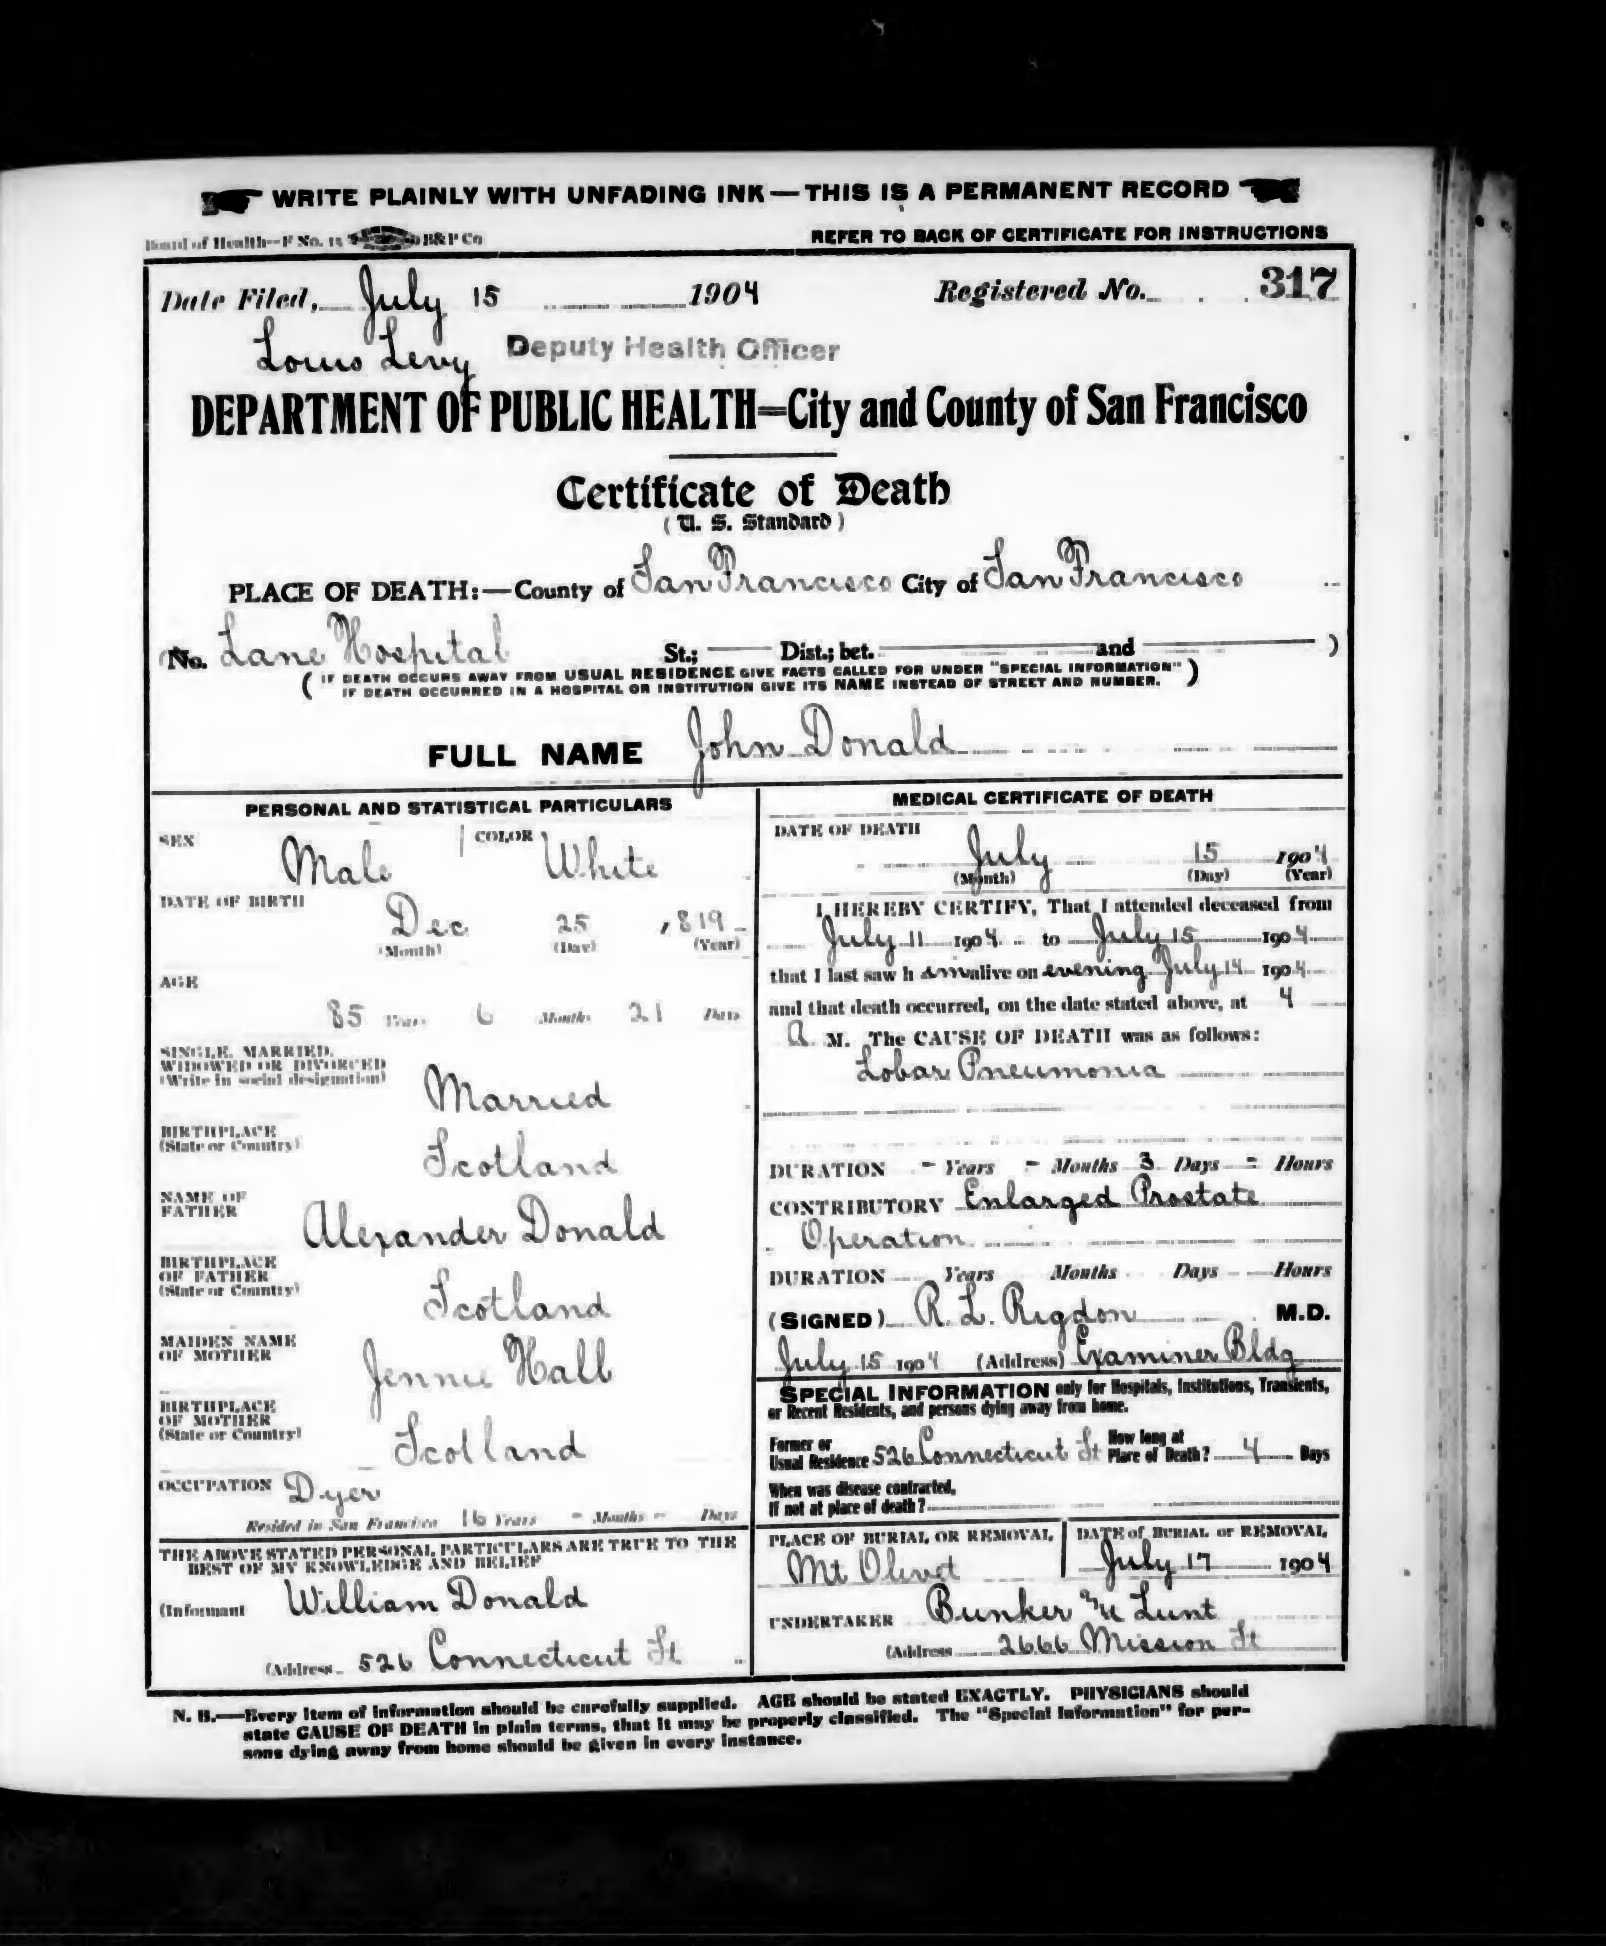 WRITE PLAINLY WITH UNFADING INK—THIS IS A PERMANENT RECORD
Board of Health—F No. 14 B&P Co
REFER TO BACK OF CERTIFICATE FOR INSTRUCTIONS
Date Filed, July 15 1904 Registered No. 317
Louis Levy Deputy Health Officer
DEPARTMENT OF PUBLIC HEALTH=City and County of San Francisco
Certificate of Death
(U. S. Standard)
PLACE OF DEATH:—County of San Francisco City of San Francisco
(No. Lane Hospital St.; Dist.; bet. and )
( IF DEATH OCCURS AWAY FROM USUAL RESIDENCE GIVE FACTS CALLED FOR UNDER "SPECIAL INFORMATION" )
IF DEATH OCCURRED IN A HOSPITAL OR INSTITUTION GIVE ITS NAME INSTEAD OF STREET AND NUMBER.
FULL NAME John Donald
PERSONAL AND STATISTICAL PARTICULARS
SEX Male COLOR White
DATE OF BIRTH
Dec 25 , 819
(Month) (Day) (Year)
AGE
85 Years 6 Months 21 Days
SINGLE, MARRIED,
WIDOWED OR DIVORCED
(Write in social designation)
Married
BIRTHPLACE
(State or Country)
Scotland
NAME OF
FATHER
Alexander Donald
BIRTHPLACE
OF FATHER
(State or Country)
Scotland
MAIDEN NAME
OF MOTHER
Jennie Hall
BIRTHPLACE
OF MOTHER
(State or Country)
Scotland
OCCUPATION Dyer
Resided in San Francisco 16 Years - Months - Days
THE ABOVE STATED PERSONAL PARTICULARS ARE TRUE TO THE
BEST OF MY KNOWLEDGE AND BELIEF
(Informant William Donald
(Address 526 Connecticut St
MEDICAL CERTIFICATE OF DEATH
DATE OF DEATH
July 15 1904
(Month) (Day) (Year)
I HEREBY CERTIFY, That I attended deceased from
July 11 1904 to July 15 1904
that I last saw h im alive on evening July 14 1904
and that death occurred, on the date stated above, at 4
A M. The CAUSE OF DEATH was as follows:
Lobar Pneumonia
DURATION - Years - Months 3 Days - Hours
CONTRIBUTORY Enlarged Prostate
Operation
DURATION Years Months Days Hours
(SIGNED) R. L. Rigdon M.D.
July 15 1904 (Address) Examiner Bldg
SPECIAL INFORMATION only for Hospitals, Institutions, Transients,
or Recent Residents, and persons dying away from home.
Former or
Usual Residence 526 Connecticut St How long at
Place of Death? 4 Days
When was disease contracted,
If not at place of death?
PLACE OF BURIAL OR REMOVAL DATE of BURIAL or REMOVAL
Mt Olivet July 17 1904
UNDERTAKER Bunker & Lunt
(Address 2666 Mission St
N. B.—Every item of information should be carefully supplied. AGE should be stated EXACTLY. PHYSICIANS should
state CAUSE OF DEATH in plain terms, that it may be properly classified. The "Special Information" for per-
sons dying away from home should be given in every instance.